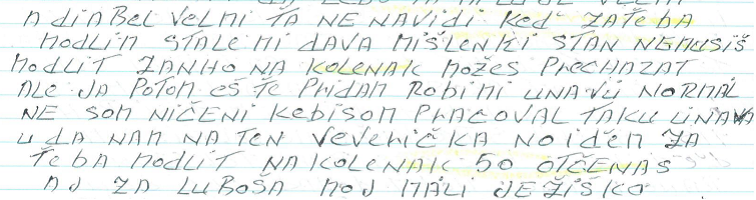 A DIABEL VELMI ŤA NENAVIDI KEĎ ZATEBA
MODLIM STALE MI DAVA MIŠLENKI STAN NEMUSIŠ
MODLIT ZANHO NA KOLENAK MOŽES PRECHAZAT
ALE JA POTOM EŠTE PRIDAM ROBI MI UNAVU NORMAL
NE SOM NIČENI KEBISOM PRACOVAL TAKU UNAVA
U DA NAM NA TEN VEVERIČKA NO IDEM ZA
TEBA MODLIT NA KOLENAK 50 OTČENAS
AJ ZA LUBOŠA MOJ MALI JEŽIŠKO